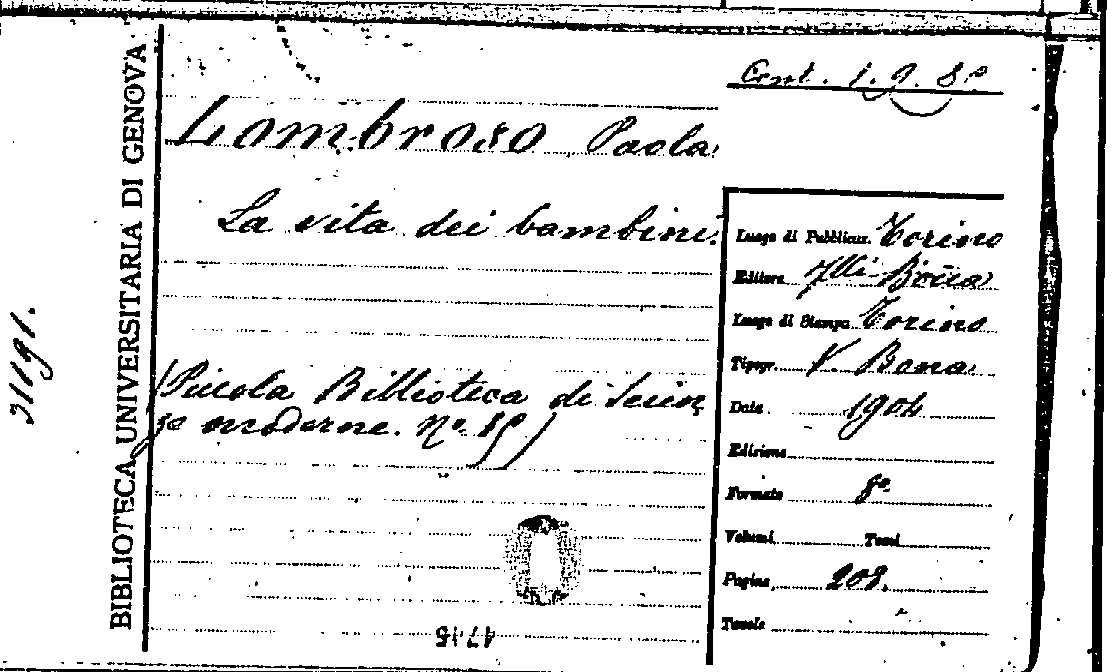 BIBLIOTECA UNIVERSITARIA DI GENOVA
31191.
Lombroso Paola
La vita dei bambini.
(Piccola Biblioteca di Scien
ze moderne. No. 85)
Cont. 1. 9. 8º
Luogo di Pubblicaz. Torino
Editore Flli Bocca
Luogo di Stampa Torino
Tipogr. V. Bona
Data 1904
Edizione
Formato 8º
Volumi Tomi
Pagine 208.
Tavole
4745